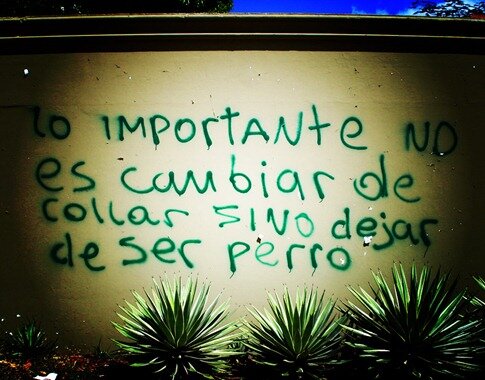 lo IMPORTANTE NO
es cambiar de
collar SINO dejar
de ser perro